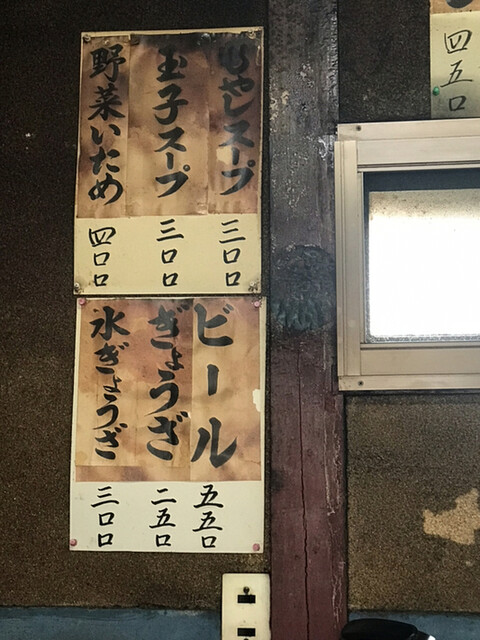 もやしスープ
三〇〇
玉子スープ
三〇〇
野菜いため
四〇〇
ビール
五五〇
ぎょうざ
二五〇
水ぎょうざ
三〇〇
四五〇